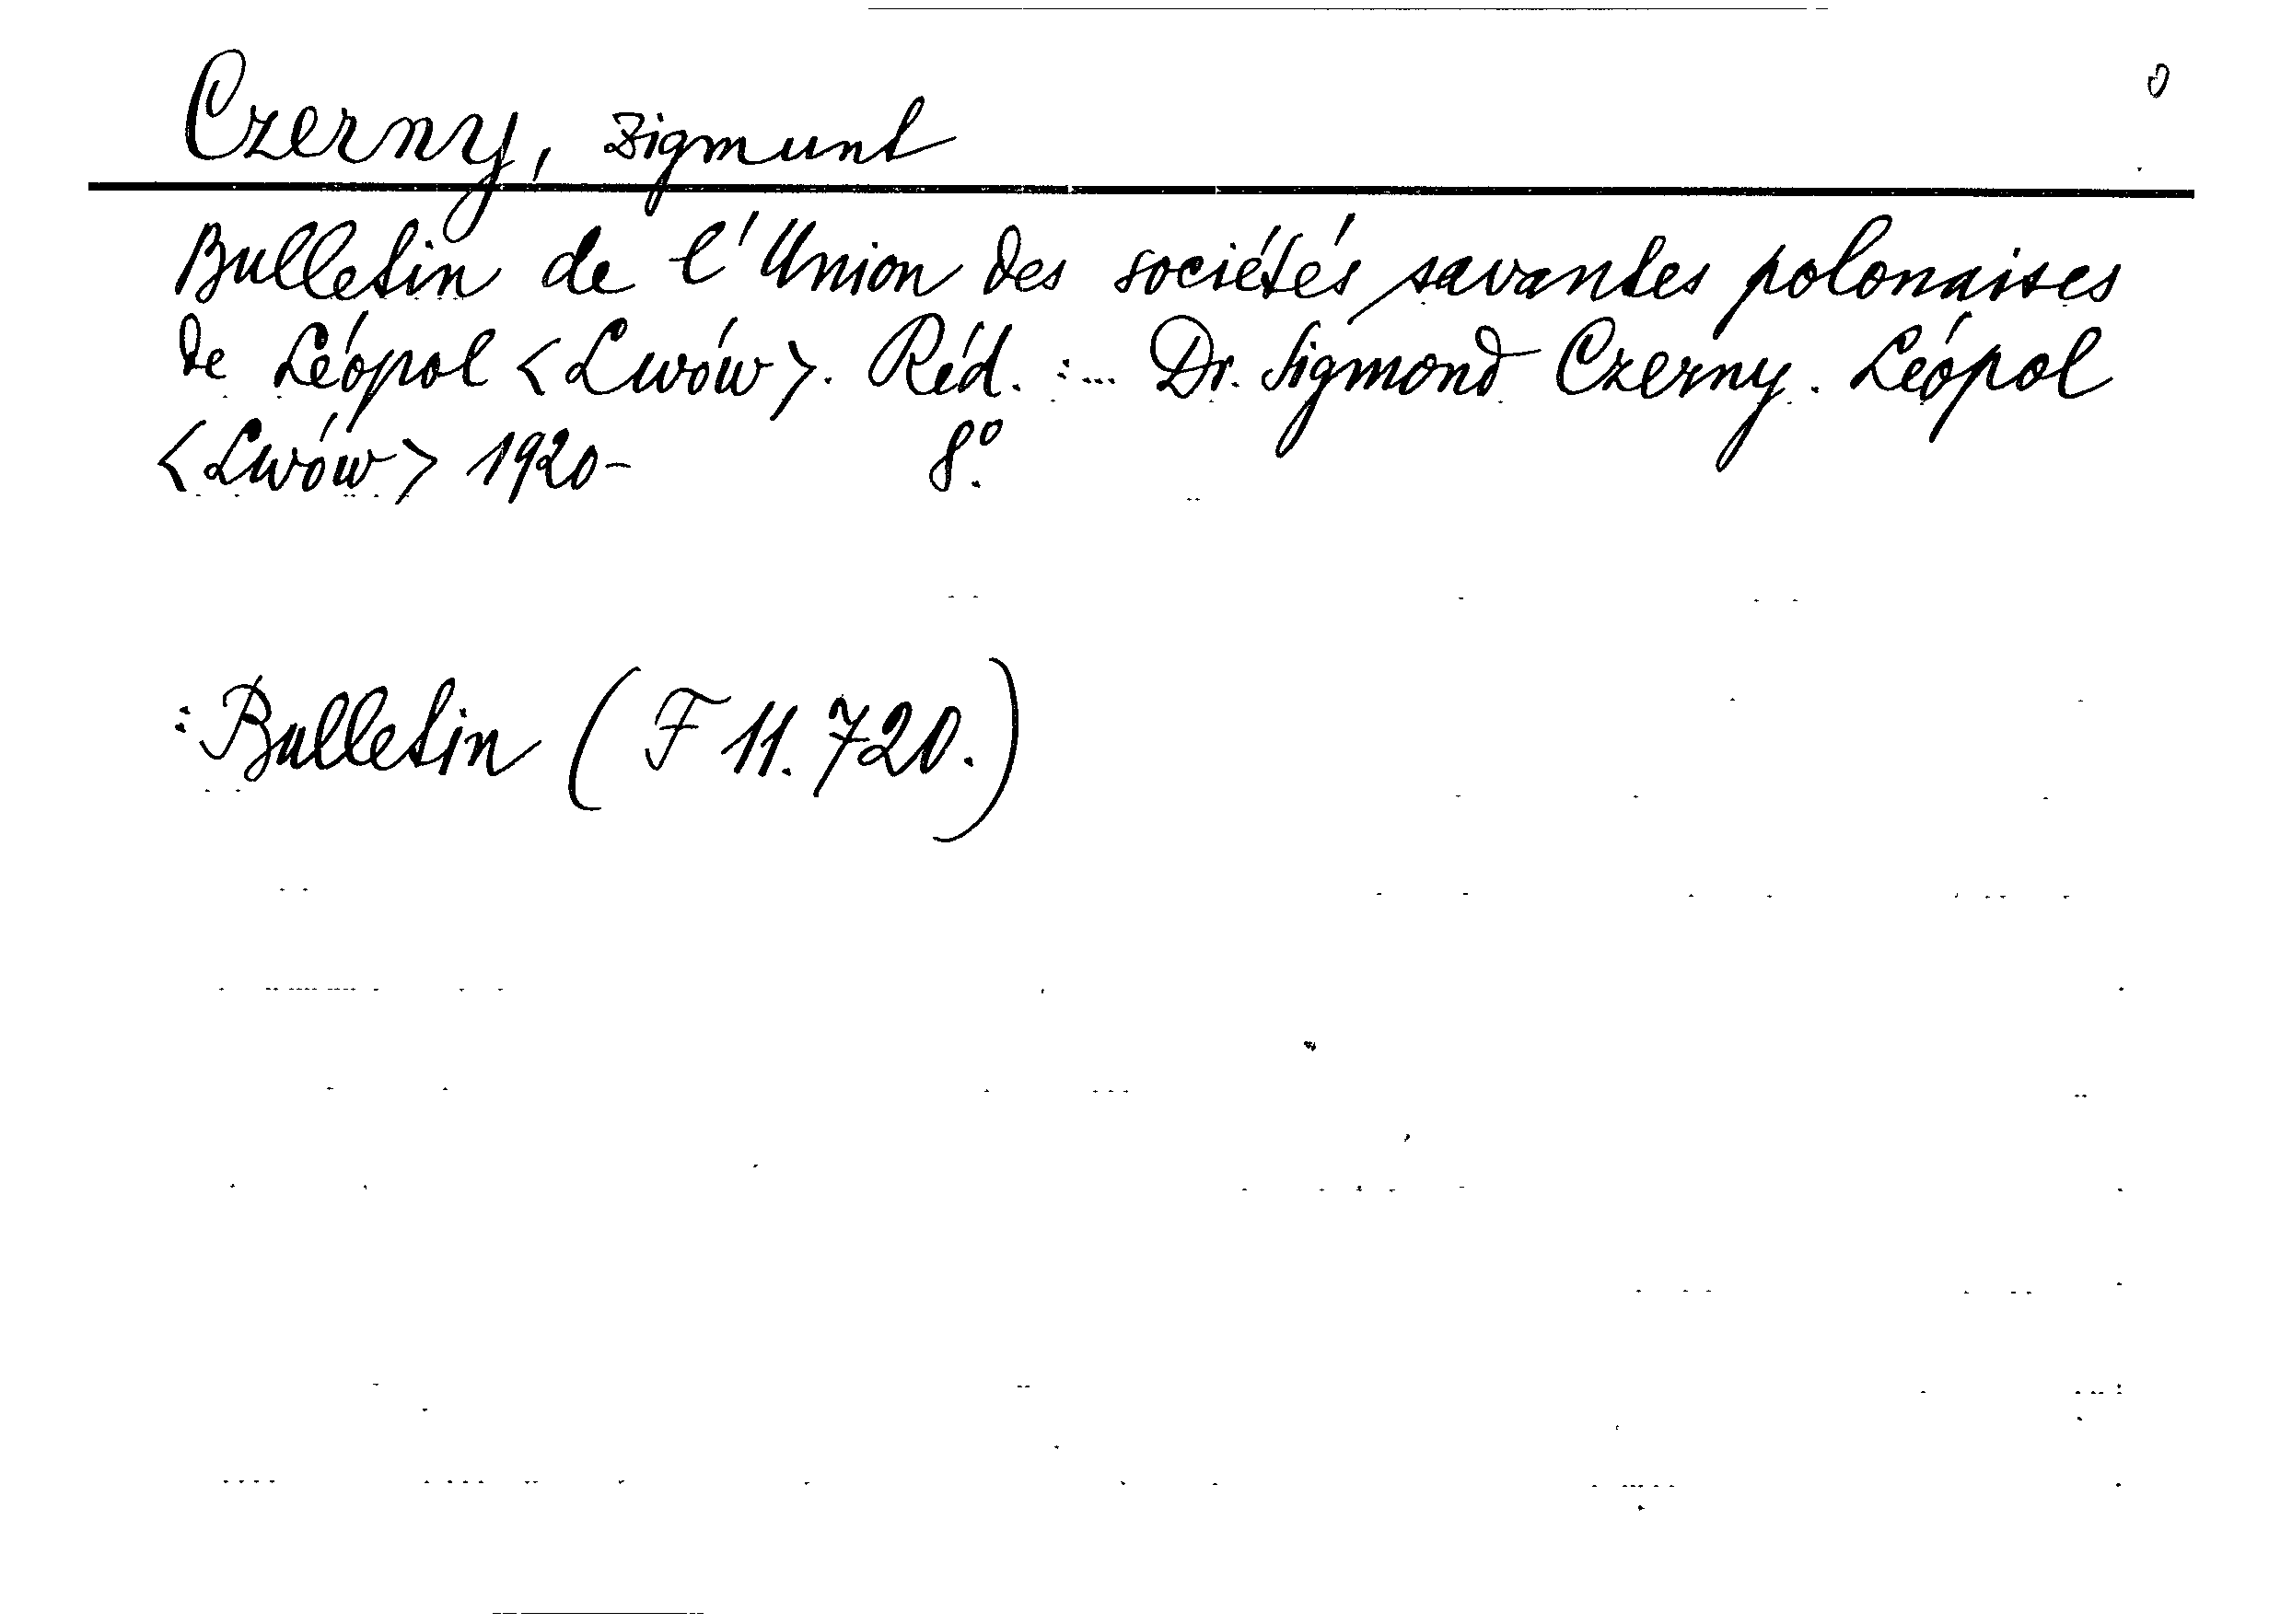 Czerny, Zigmunt
Bulletin de l'Union des sociétés savantes polonaises
de Léopol <Lwów>. Réd. : ... Dr. Sigmond Czerny. Léopol
<Lwów> 1920- 8°.
: Bulletin (F 11.720.)